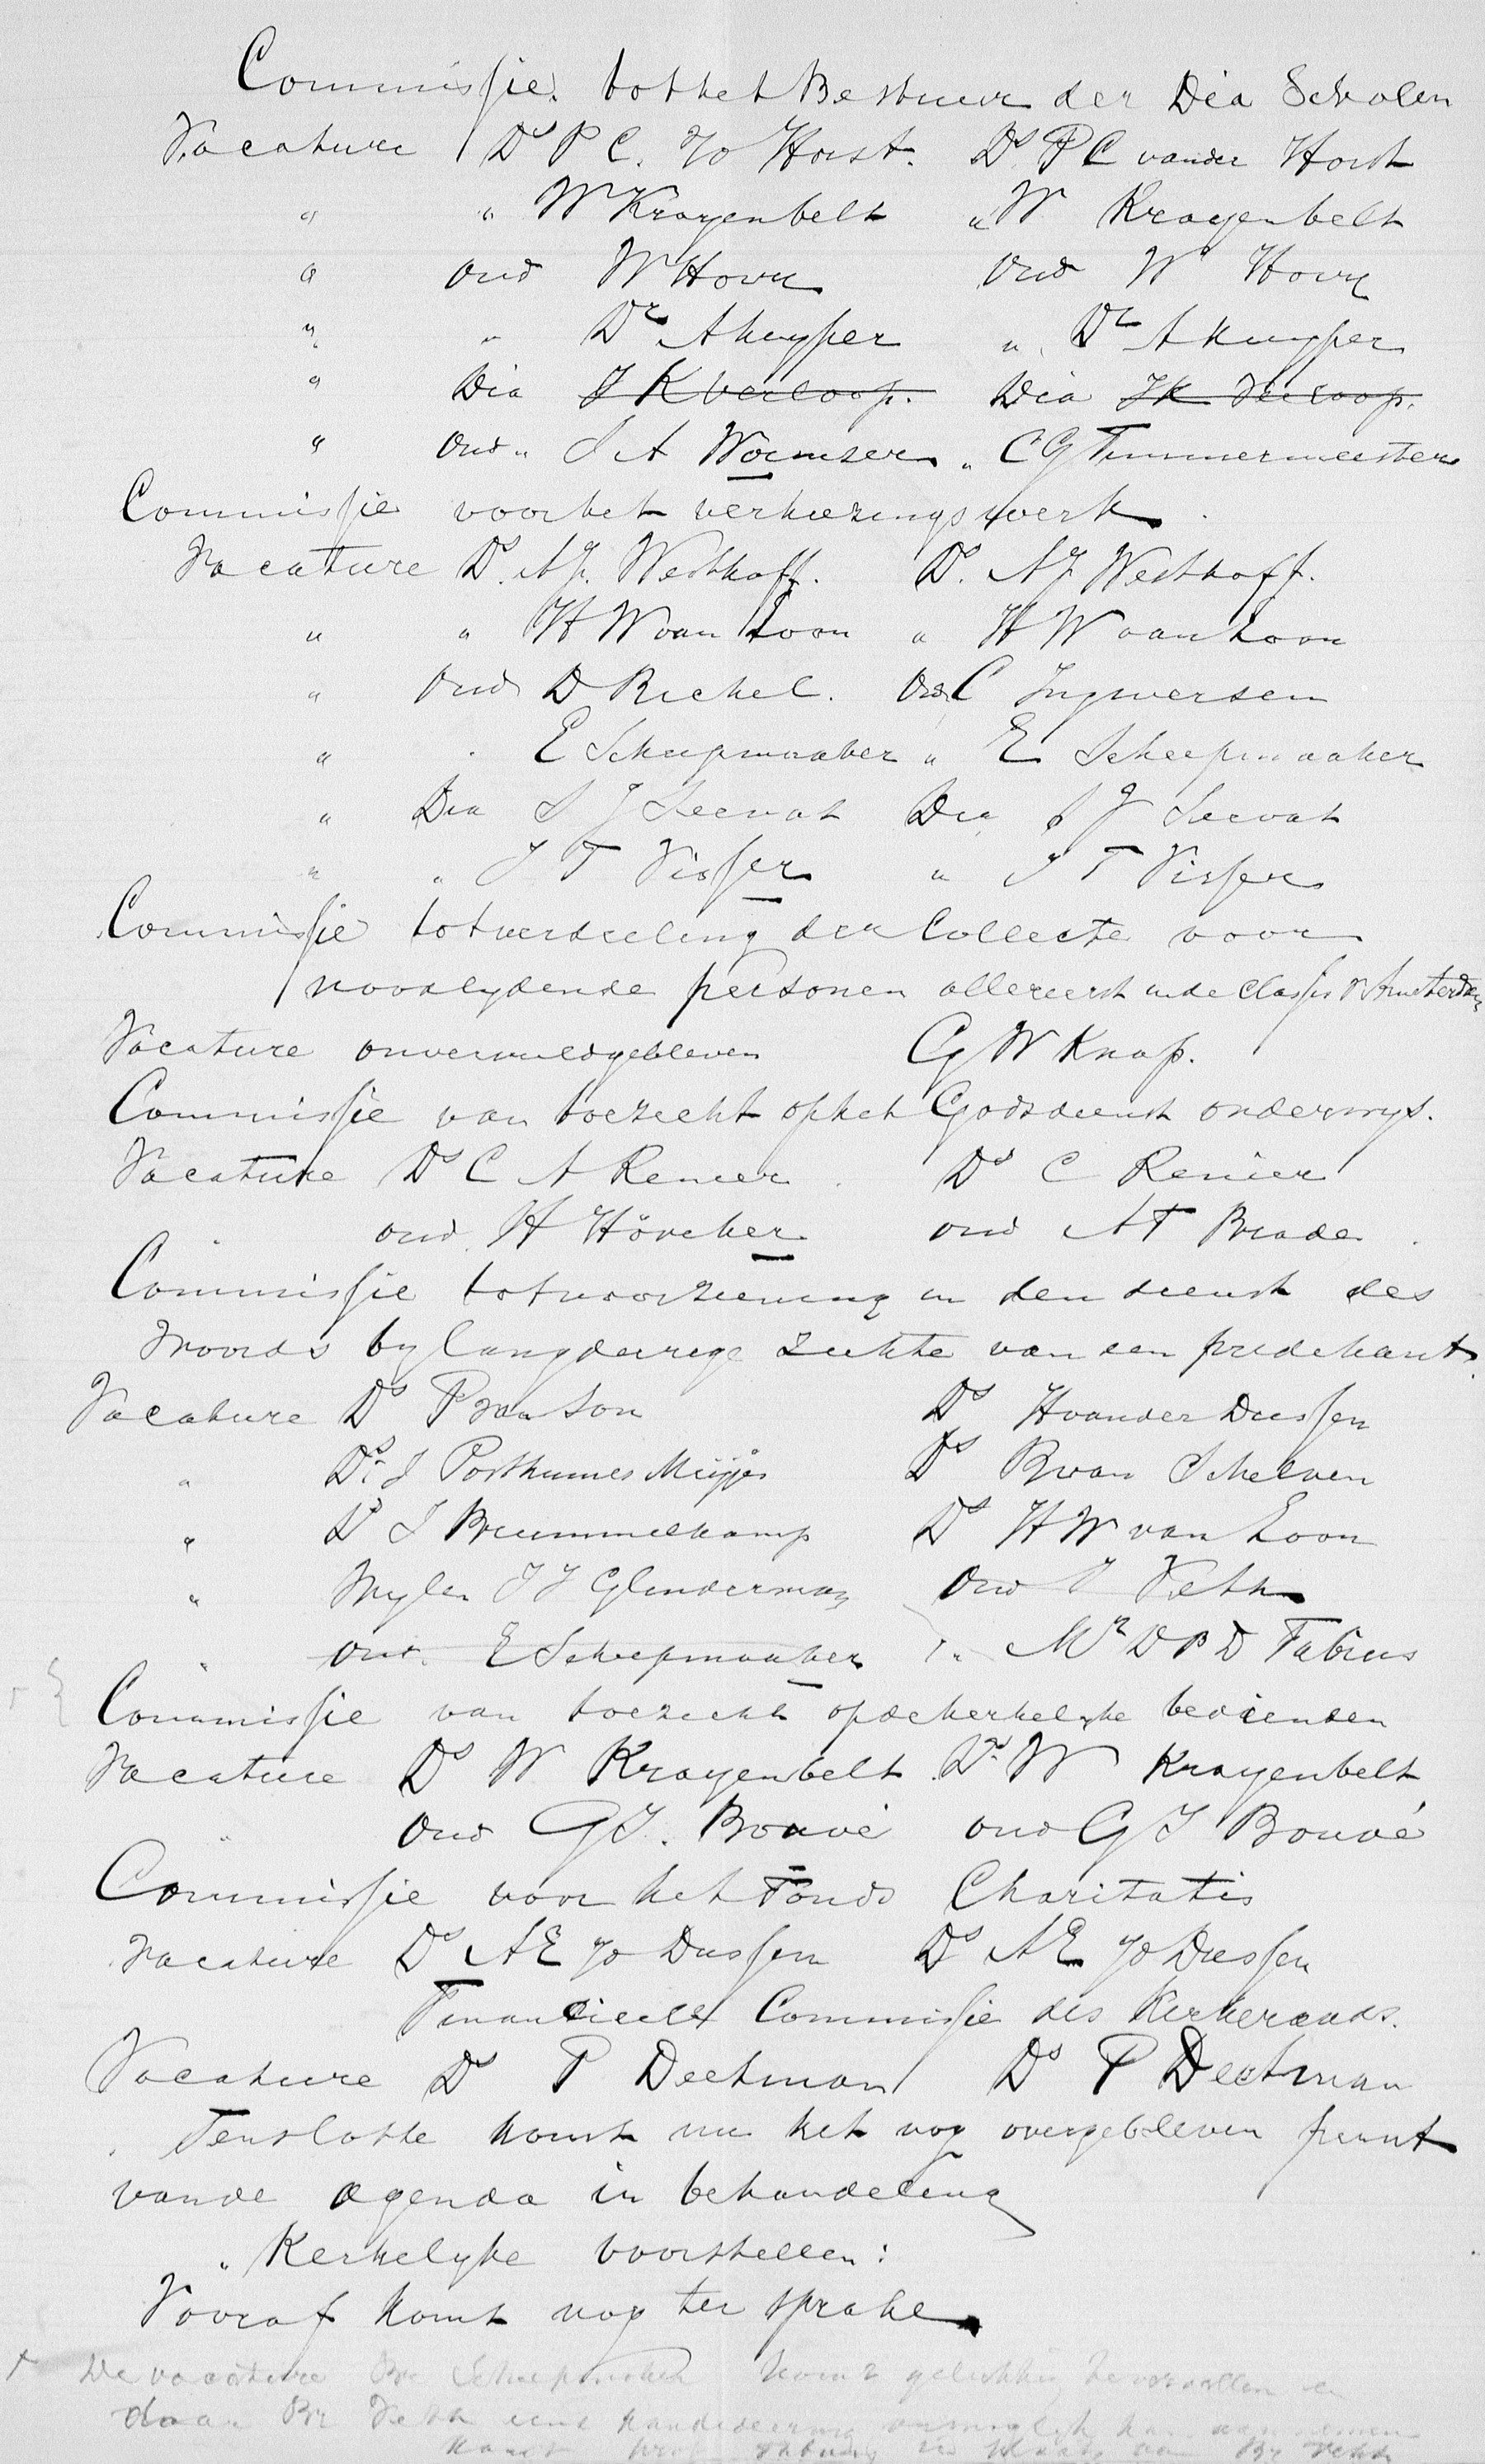 Commissie tot het Bestuur der Dia Scholen
Vacature Ds P C. Vo Horst. Ds P C van der Horst
" " W Krayenbelt " W Krayenbelt
" oud W Hovy oud W Hovy
" " Dr A Kuyper " Dr A Kuyper
" Dia J K Verloop. Dia J K Verloop.
" oud " J A Wormser " C G Timmermeester
Commissie voor het verkiezingswerk.
Vacature Ds. A J. Westhoff. Ds. A J Westhoff.
" " H W van Loon " H W van Loon
" oud D Richel. oud C Ingwersen
" " E Scheepmaaker " E Scheepmaaker
" Dia S J Seevat Dia S J Seevat
" " J T Visser " J T Visser
Commissie tot verdeeling der Collecte voor
noodlydende personen allereerst in de Classis v Amsterdam
Vacature onvervuld gebleven G W Knap.
Commissie van toezicht op het Godsdienst onderwys.
Vacature Ds C A Renier Ds C Renier
" oud H Höveker oud A T Brade
Commissie tot voorziening in den dienst des
Woords by langdurige ziekte van een predekant.
Vacature Ds P van Son Ds H van der Dussen
" Ds J Posthumes Meijjes Ds B van Schelven
" Ds J Brummelkamp Ds H W van Loon
" Wylen J J Glinderman oud J Veth
" oud. E Scheepmaaker " Mr D P D Fabius
Commissie van toezicht op de kerkelyke bedienden
Vacature Ds W Krayenbelt Ds W Krayenbelt
" oud G J. Bouvé oud G J Bouvé
Commissie voor het Fonds Charitatis
Vacature Ds A E Vo Dussen Ds A E Vo Dussen
Financieele Commissie des Kerkeraads.
Vacature Ds P Deetman Ds P Deetman
Tenslotte komt nu het nog overgebleven punt
van de agenda in behandeling
" Kerkelyke voorstellen:
Vooraf komt nog ter sprake
De vacature Br Scheepmaker komt gelukkig te vervallen en
daar Br Veth eene kandideering onmogelyk kan aannemen
komt in plaats van Br Veth